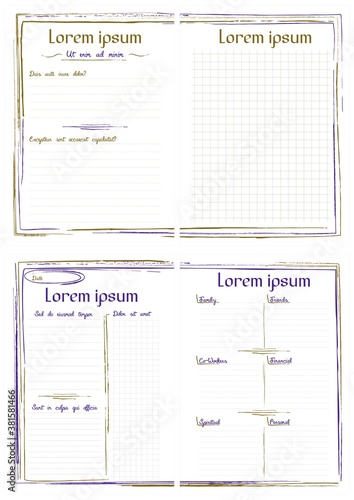 Lorem ipsum
Ut enim ad minim
Duis aute irure dolor?
Excepteur sint occaecat cupidatat?
Lorem ipsum
Date
Lorem ipsum
Sed do eiusmod tempor
Dolor sit amet
Sunt in culpa qui officia
Lorem ipsum
Family
Friends
Co-Workers
Financial
Spiritual
Personal
Adobe Stock | #381581466